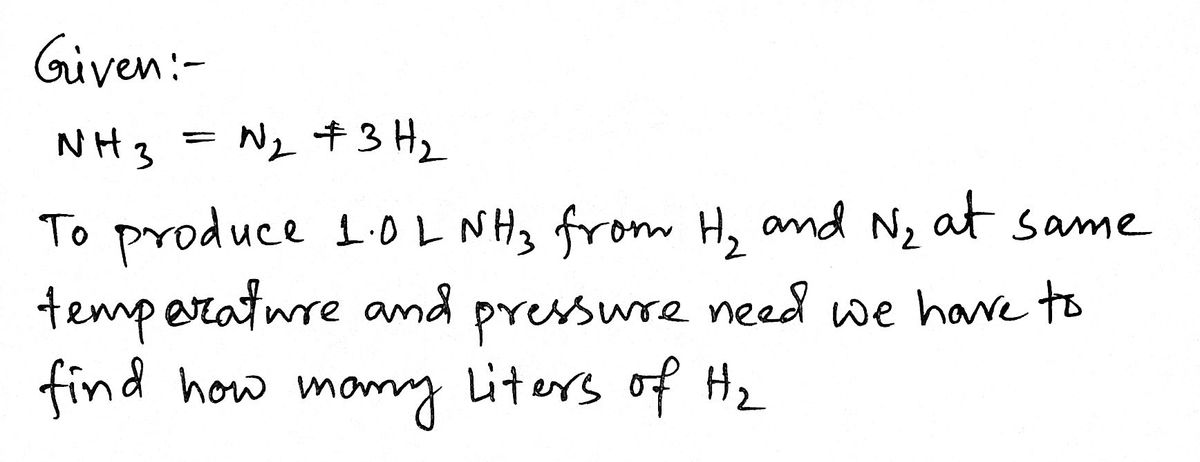 Given:-
NH₃ = N₂ + 3H₂
To produce 1.0 L NH₃ from H₂ and N₂ at same
temperature and pressure need we have to
find how many Liters of H₂